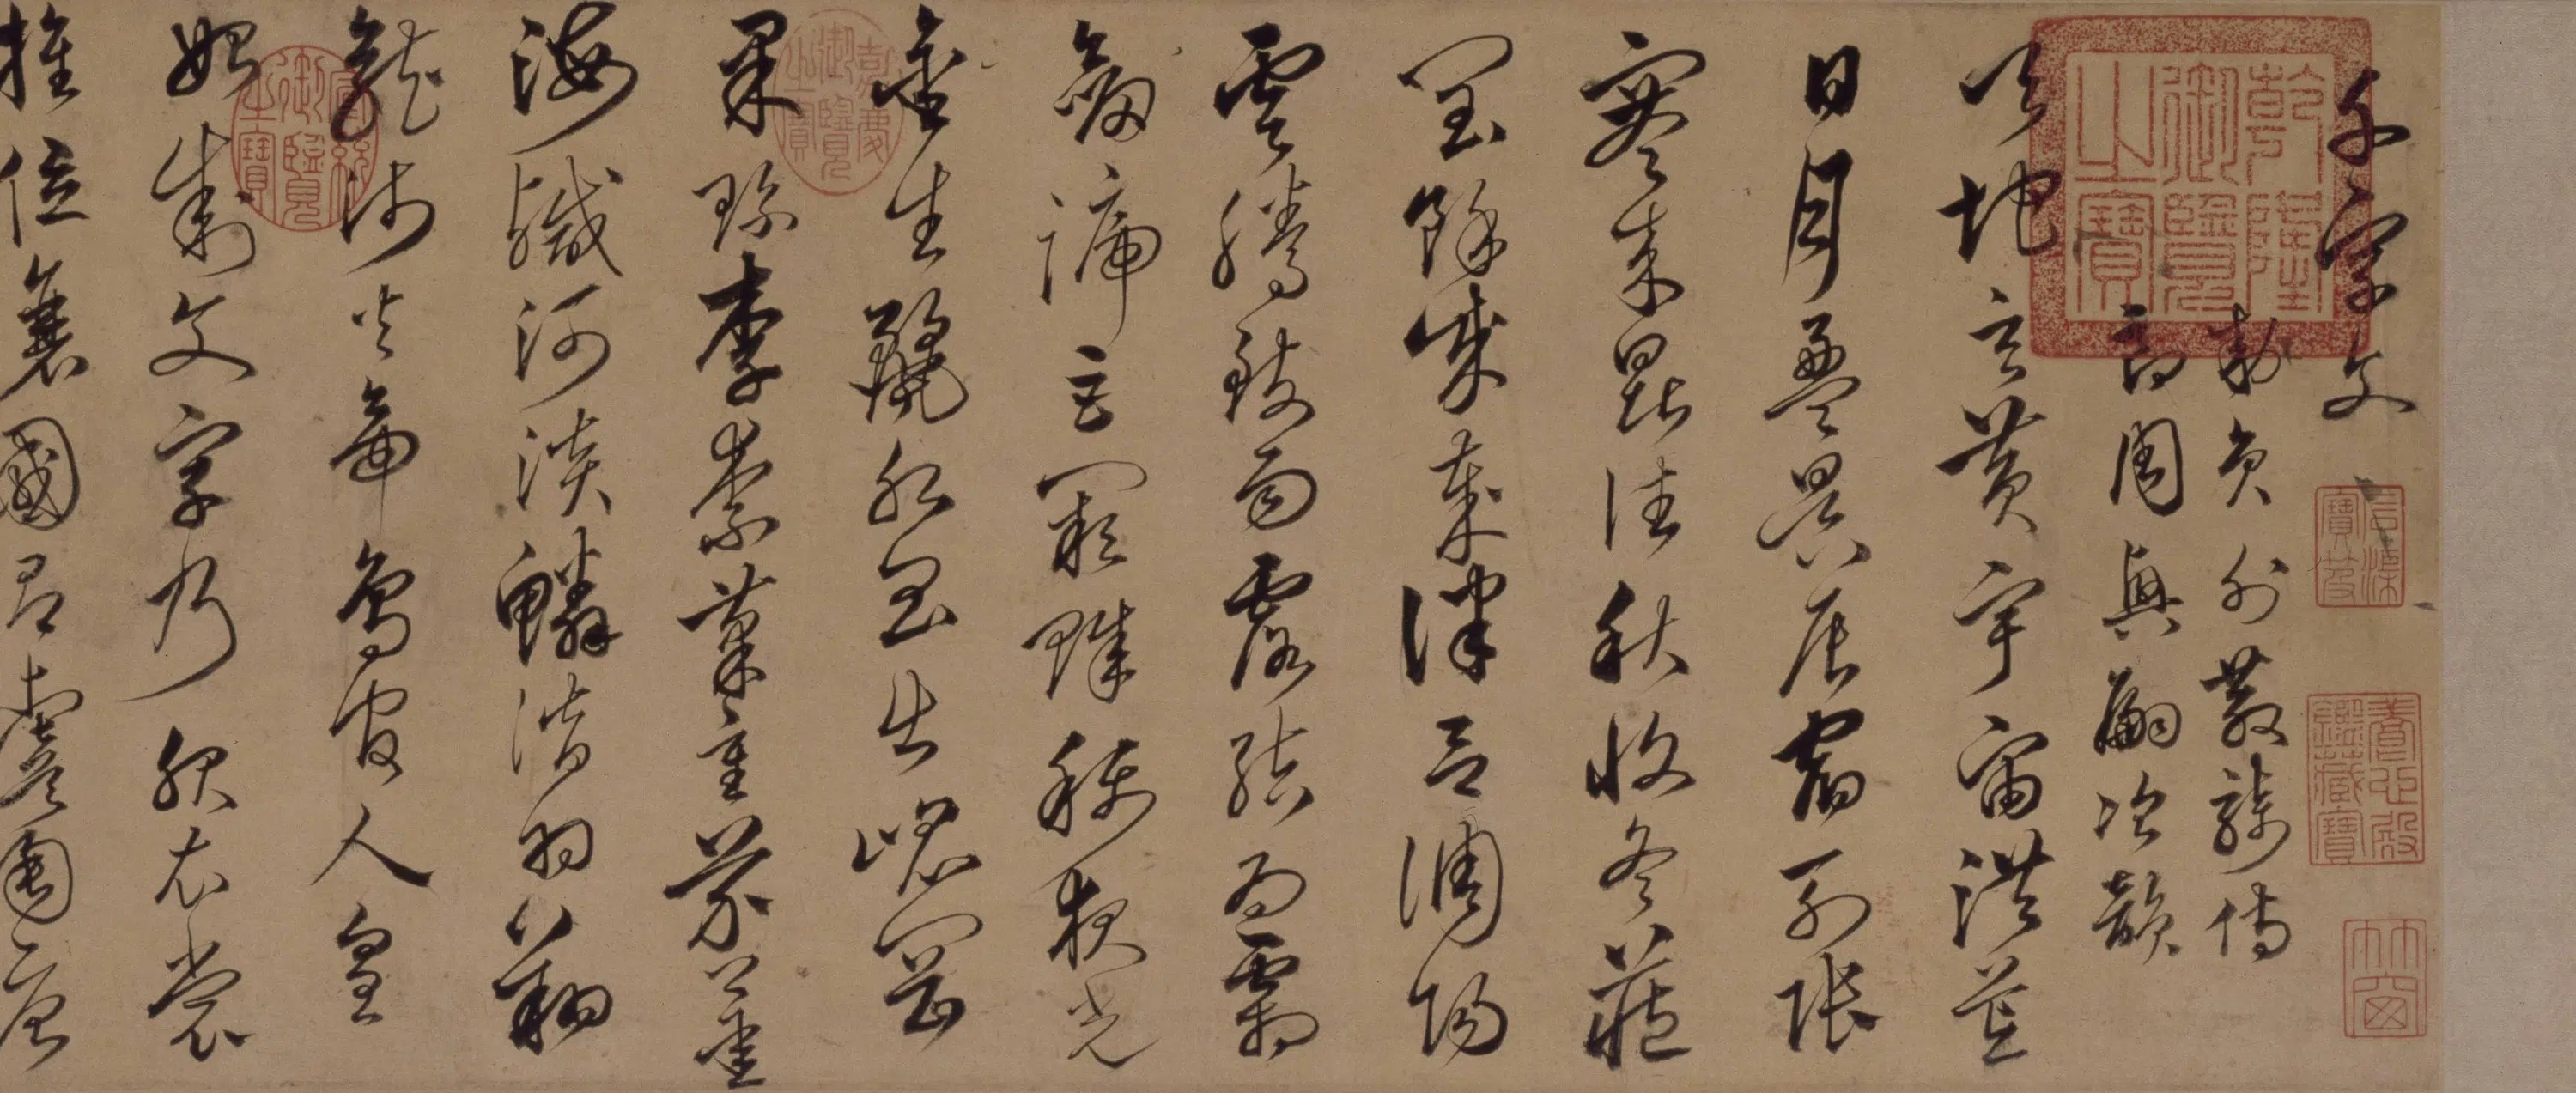 千字文
勅員外散騎侍
郎周興嗣次韻
天地玄黃宇宙洪荒
日月盈昃辰宿列張
寒來暑往秋收冬藏
閏餘成歲律呂調陽
雲騰致雨露結為霜
劍號巨闕珠稱夜光
金生麗水玉出崑岡
果珍李柰菜重芥薑
海鹹河淡鱗潛羽翔
龍師火帝鳥官人皇
始制文字乃服衣裳
推位讓國有虞陶唐
乾隆御覽之寶
石渠寶笈
養心殿鑑藏寶
嘉慶御覽之寶
宣統御覽之寶